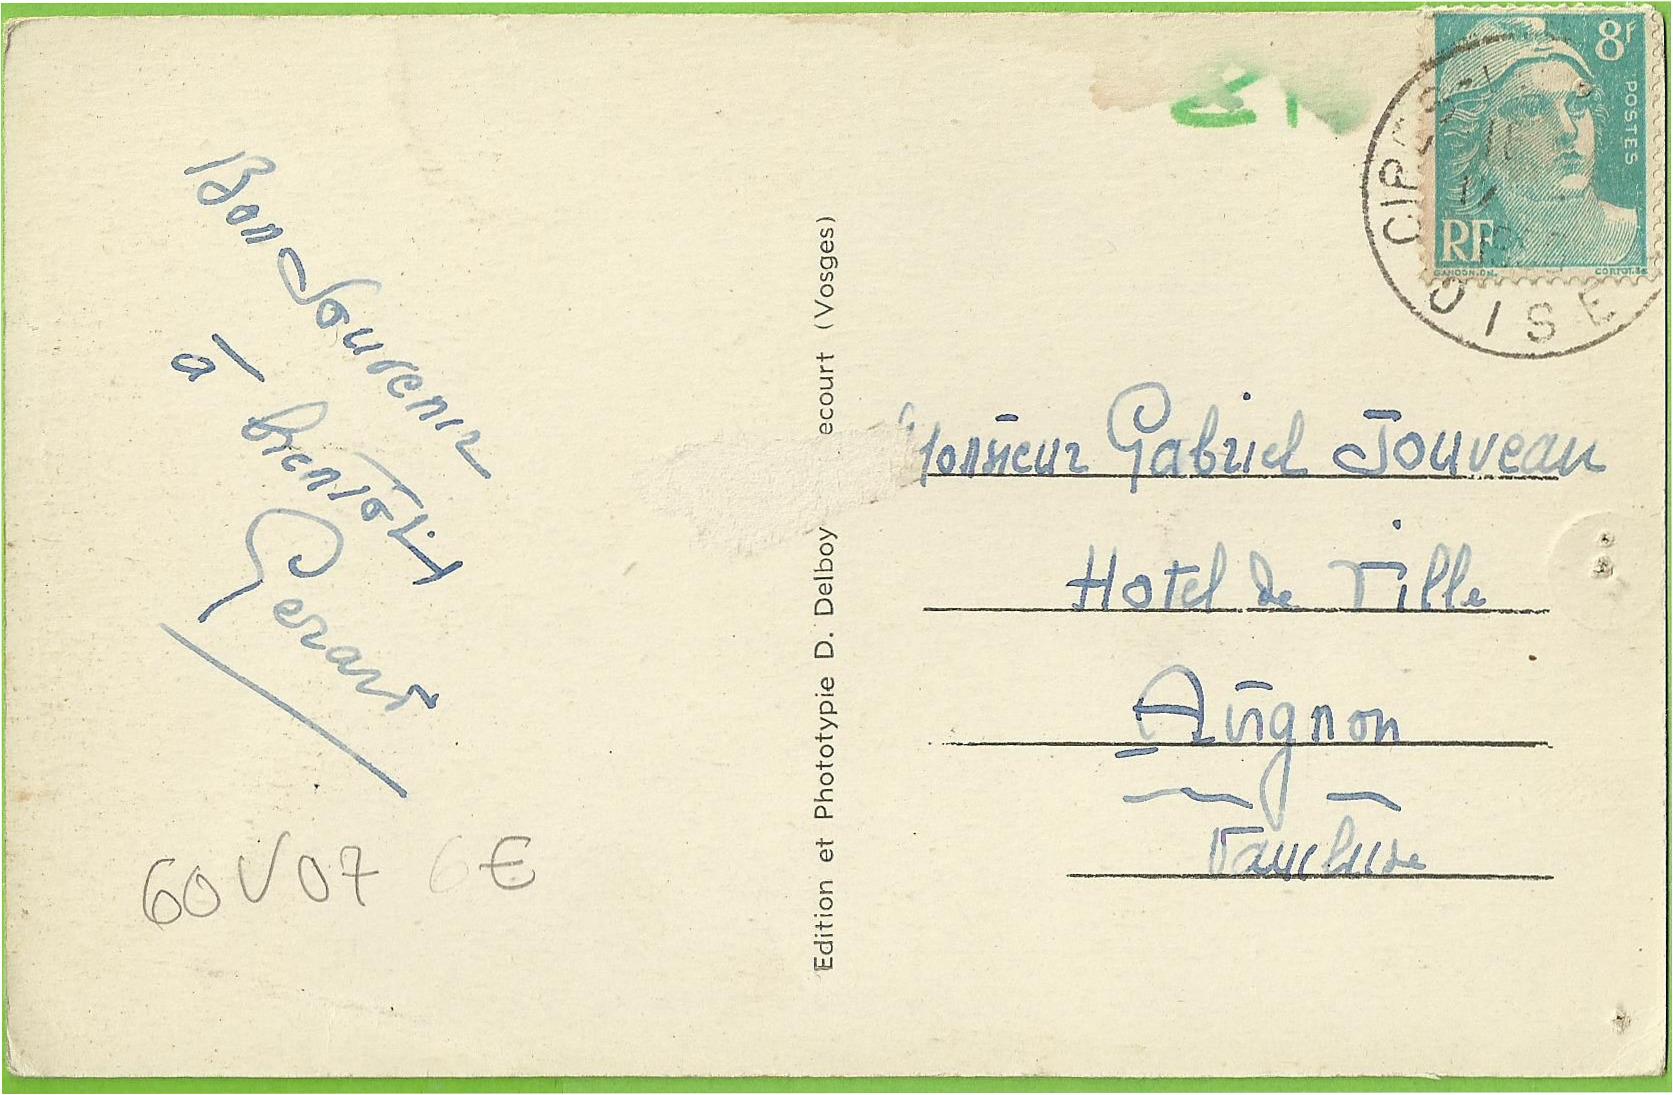 Bon Souvenir
à bientôt
Gerard
60 V 07 6 €
Edition et Phototypie D. Delboy
ecourt (Vosges)
8f
POSTES
RF
GANDON.DEL.
CORTOT.SC.
OISE
Monsieur Gabriel Jouveau
Hotel de Ville
Avignon
Vaucluse